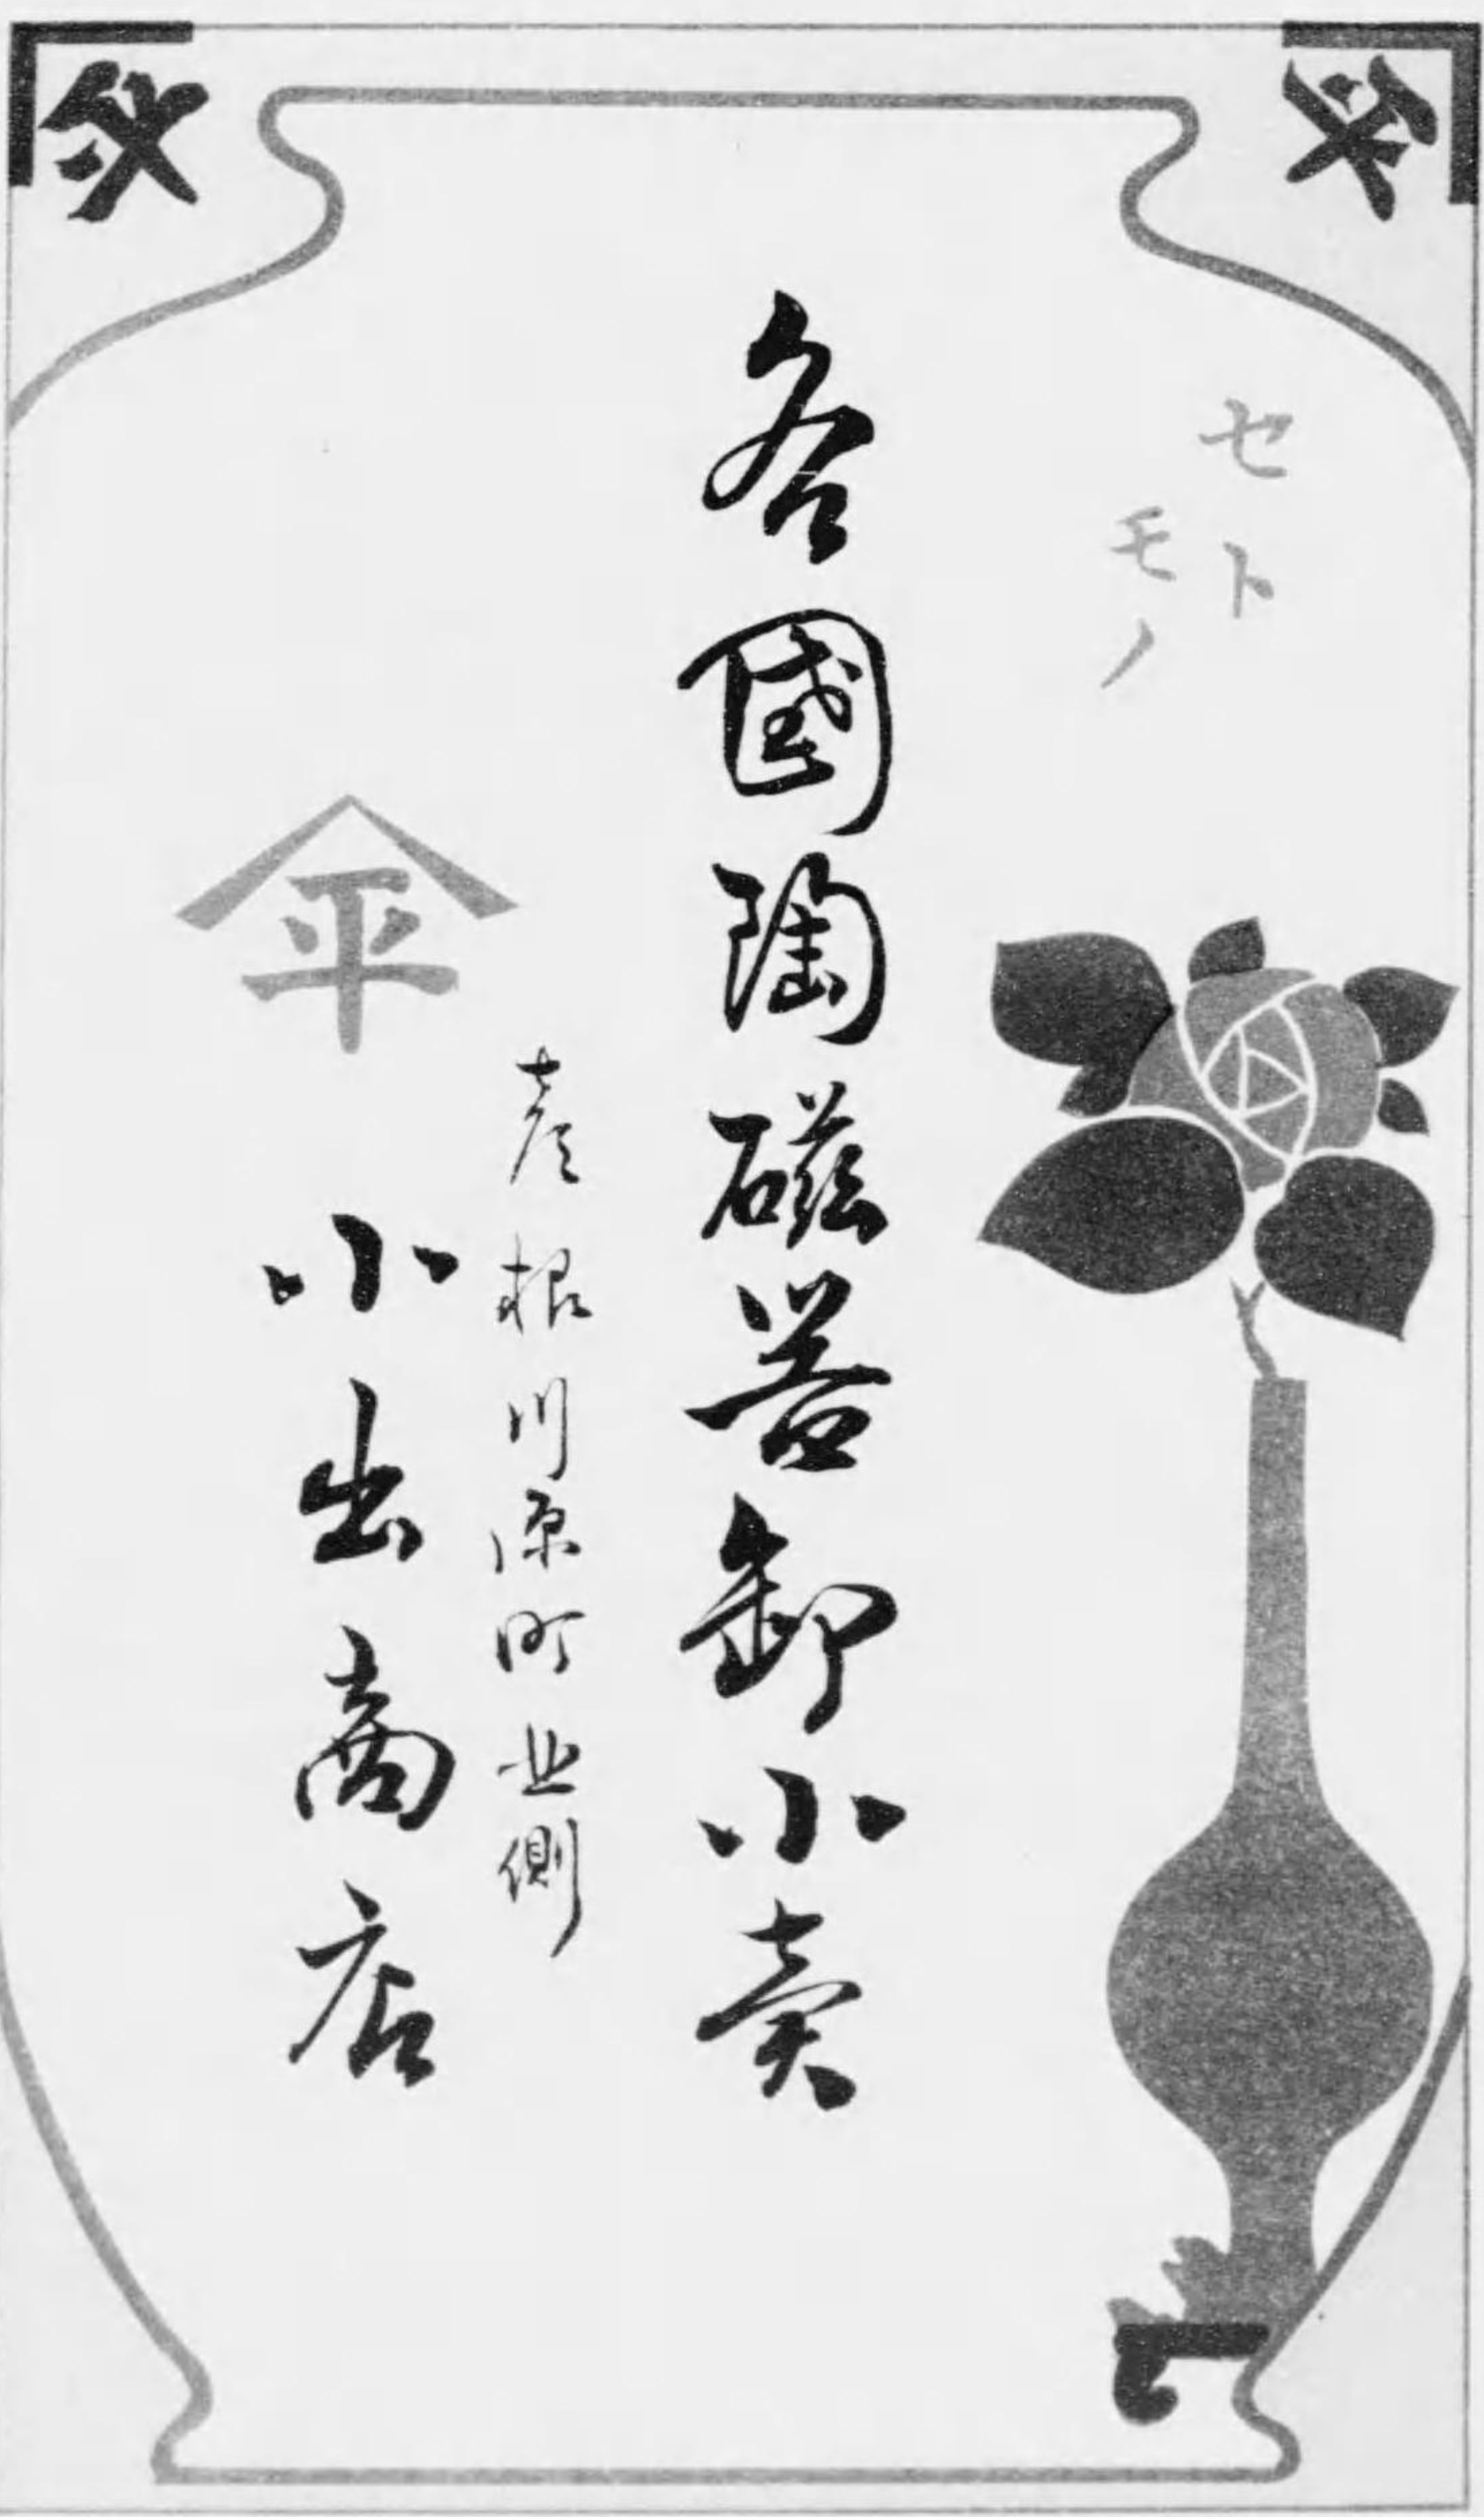 セト
モノ
各國陶磁器卸小賣
彦根川原町北側
平
小出商店